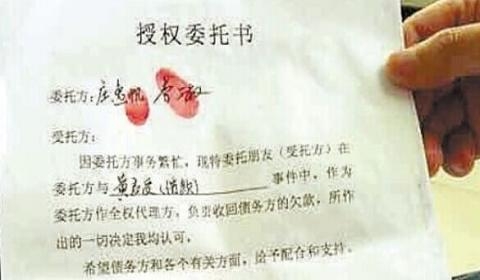 授权委托书
委托方:
受托方:
因委托方事务繁忙,现特委托朋友(受托方)在
委托方与 事件中,作为
委托方作全权代理方,负责收回债务方的欠款,所作
出的一切决定我均认可。
希望债务方和各个有关方面,给予配合和支持。